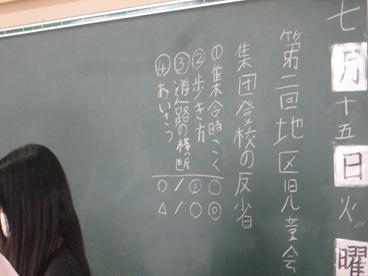 七月十五日火曜
第二回地区児童会
集団登校の反省
①集合時こく ○ ◎
②歩き方 ◎ ○
③道路の横断 / /
④あいさつ ○ △